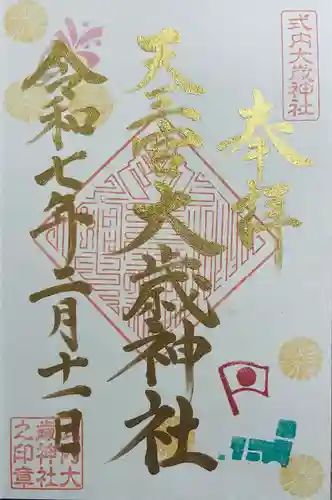 式内大歳神社
奉拝
天三宮大歳神社
令和七年二月十一日
式内大
歳神社
之印章